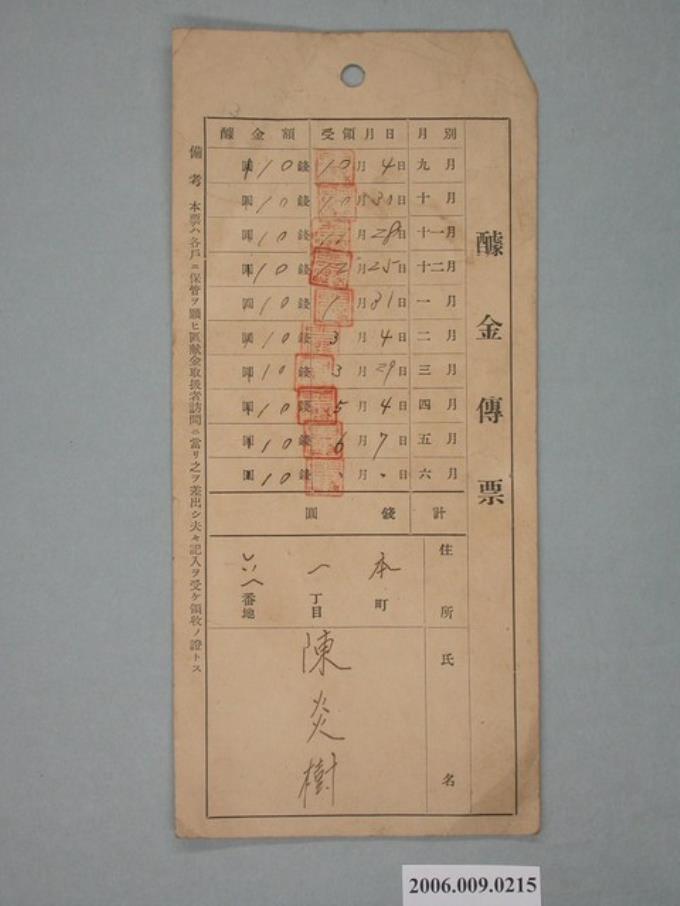 醵金傳票
月別 受領月日 醵金額
九月 10月4日 10錢 圓
十月 10月30日 10錢 圓
十一月 11月28日 10錢 圓
十二月 12月25日 10錢 圓
一月 1月31日 10錢 圓
二月 3月4日 10錢 圓
三月 3月29日 10錢 圓
四月 5月4日 10錢 圓
五月 6月7日 10錢 圓
六月 、月、日 10錢 圓
計 錢 圓
住所 本町 一丁目 番地
氏名 陳炎樹
備考 本票ハ各戶ニ保管ヲ願ヒ區獻金取扱者訪問ニ當リ之ヲ差出シ夫々記入ヲ受ケ領收ノ證トス
2006.009.0215